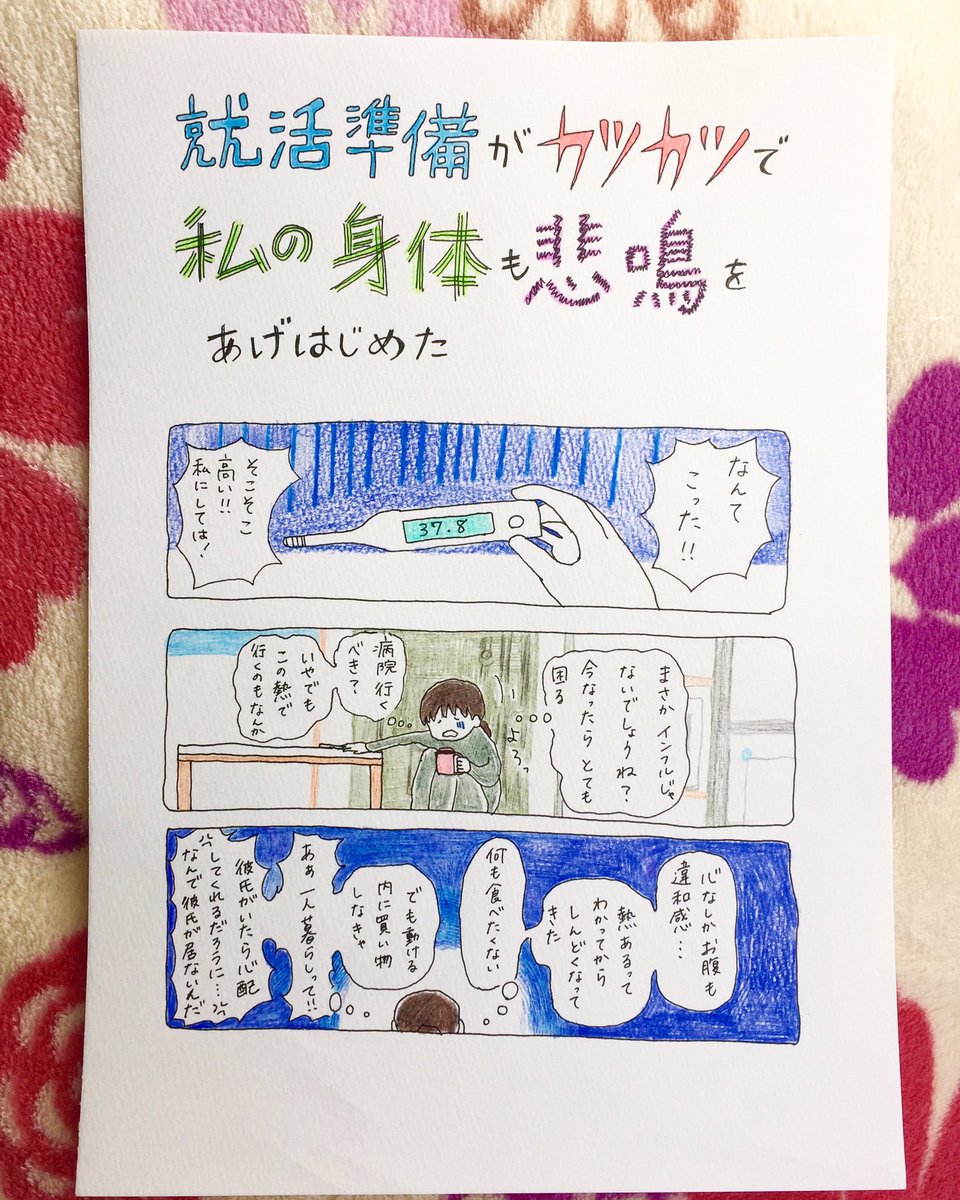 就活準備がカツカツで
私の身体も悲鳴を
あげはじめた
なんて
こった!!
37.8
そこそこ
高い!!
私にしては!
まさかインフルじゃ
ないでしょうね?
今なったらとても
困る
よろっ
病院行く
べき?
いやでも
この熱で
行くのもなんか
心なしかお腹も
違和感…
熱あるって
わかってから
しんどくなって
きた
何も食べたくない
でも動ける
内に買い物
しなきゃ
あぁ一人暮らしって!!
彼氏がいたら心配
してくれるだろうに…
なんで彼氏が居ないんだ